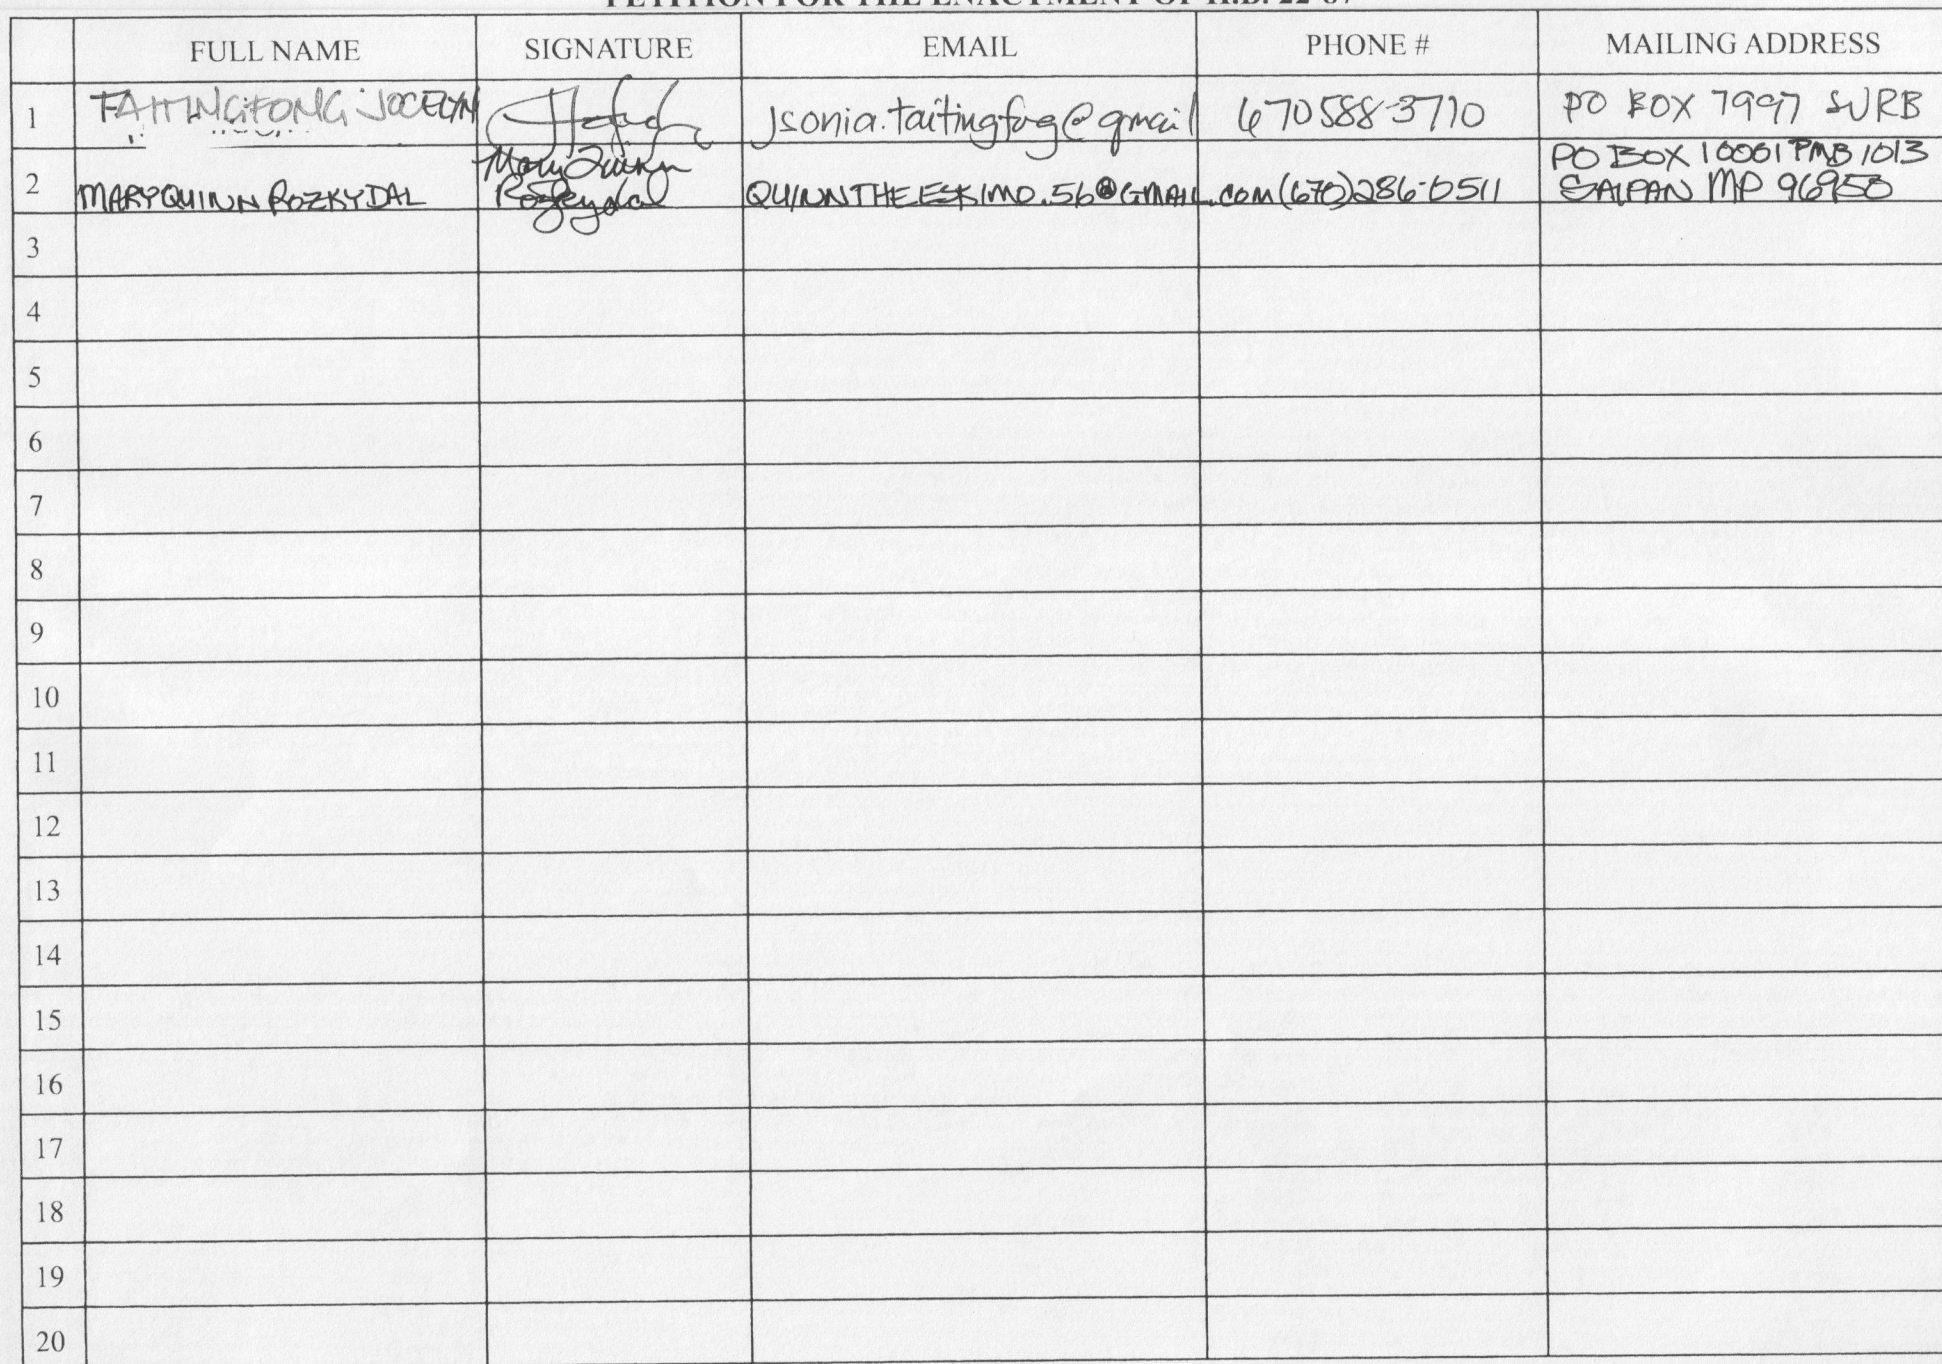 PETITION FOR THE ENACTMENT OF H.B. 22-
FULL NAME SIGNATURE EMAIL PHONE # MAILING ADDRESS
1 TAITINGFONG JOCELYN jsonia.taitingfog@gmail 670 588-3710 PO BOX 7997 SVRB
2 MARY QUINN ROZKYDAL Mary Quinn Rozkydal QUINNTHEESKIMO.56@GMAIL.COM (670)286-0511 PO BOX 10001 PMB 1013
SAIPAN MP 96950
3
4
5
6
7
8
9
10
11
12
13
14
15
16
17
18
19
20